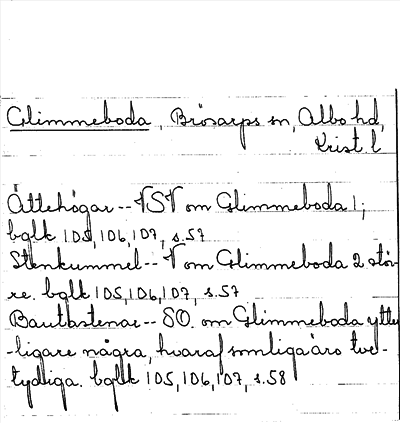 Glimmeboda, Brösarps sn, Albo hd,
Krist l
Ättehögar -- VSV om Glimmeboda 1;
bglk 105, 106, 107, s.57
Stenkummel -- V om Glimmeboda 2 stör-
re. bglk 105, 106, 107, s.57
Bautastenar -- SO. om Glimmeboda ytter
-ligare några, hvaraf somliga äro tve-
tydliga. bglk 105, 106, 107, s.58